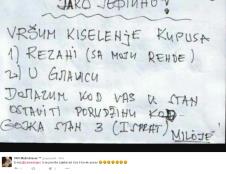 JAKO JEFTINO!
VRŠIM KISELENJE KUPUSA
1) REZANI (SA MOJU RENDE)
2) U GLAVICU
DOLAZIM KOD VAS U STAN
OSTAVITI PORUDŽINU KOD
GOJKA STAN 3 (ISPRAT)
MILOJE